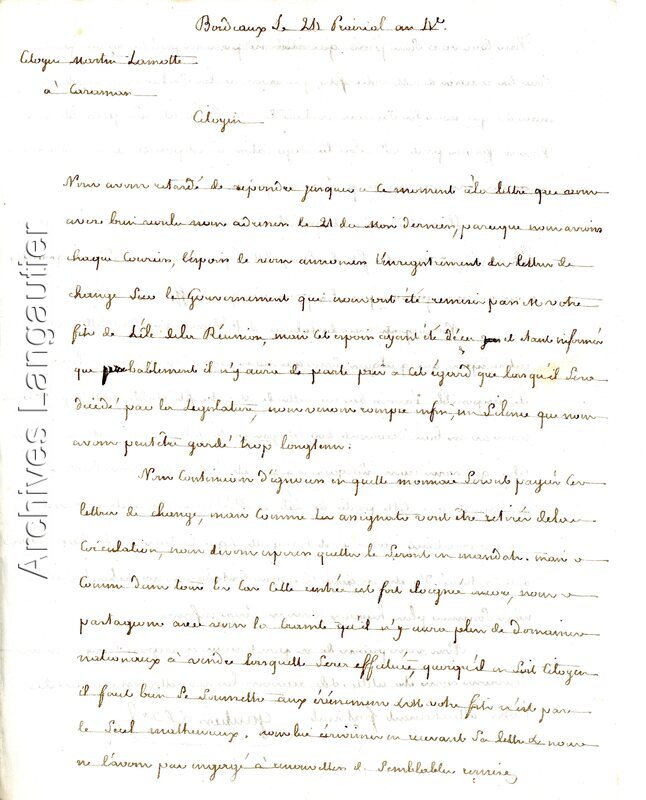 Bordeaux le 24 Prairial an IVe.
Citoyen Martin Lamotte
à Caraman
Citoyen
Nous avons retardé de repondre jusques a ce moment à la lettre que vous
avez bien voulu nous adresser le 21 du Mois dernier, parceque nous avions
chaque Courier, l'espoir de vous annoncer l'enregistrement des lettres de
change sur le Gouvernement qui nous ont été remises par M votre
fils de L'isle de la Réunion, mais cet espoir ayant été déçu et étant informés
que probablement il n'y aura de parti pris a cet égard que lorsqu'il sera
décidé par la Legislature, nous venons rompre enfin, un silence que nous
avons peutêtre gardé trop longtems:
Nous Continuons d'ignorer en quelle monnaie seront payées Ces
lettres de change, mais Comme les assignats vont être retirés de la
Circulation, nous devons esperer qu'elles le seront en mandats. mais
Comme dans tous les Cas Cette rentrée est fort eloignée encore, nous
partageons avec vous la crainte qu'il n'y aura plus de domaines
nationaux à vendre lorsqu'elle sera effectuée, quoiqu'il en soit Citoyen
il faut bien se soumettre aux événemens & M votre fils n'est pas
le seul malheureux. nous lui écrivimes en recevant sa lettre & nous
ne l'avons pas engagé à nous de semblables remises,
Archives Langautier